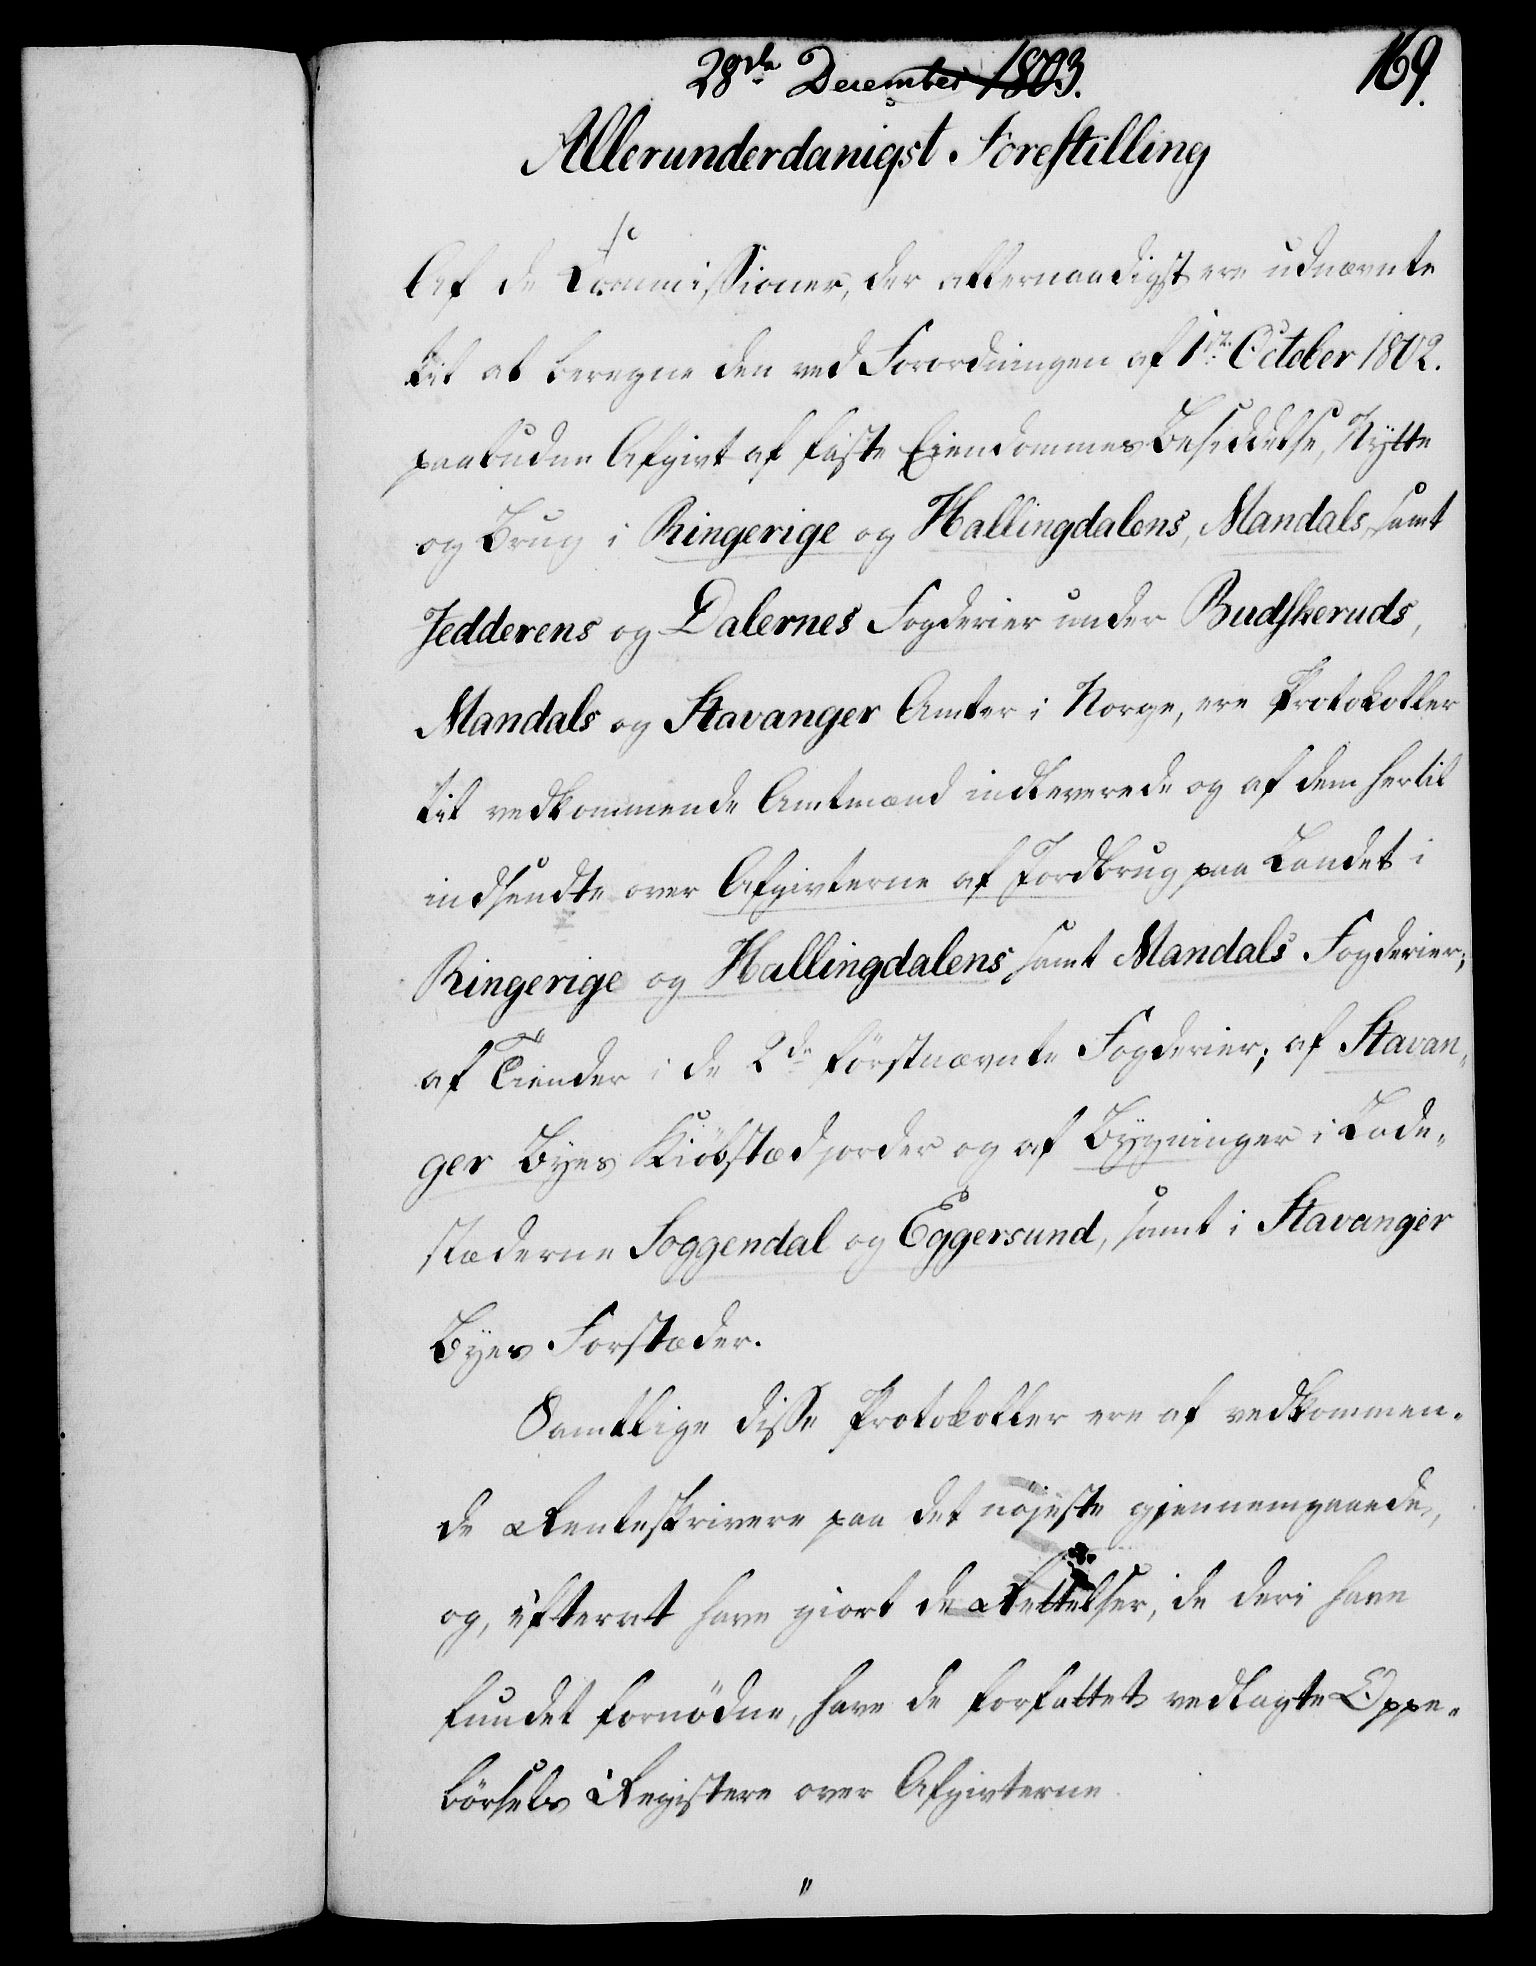 28de December 1803.
169.
Allerunderdanigst Forestilling
Af de Commissioner, der allernaadigst ere udnævnte
til at beregne den ved Forordningen af 1ste October 1802.
paabudne Afgivt af faste Eiendommes Besiddelse, Nytte
og Brug i Ringerige og Hallingdalens, Mandals, samt
Jedderens og Dalernes Fogderier under Budskeruds,
Mandals og Stavanger Amter i Norge, ere Protokoller
til vedkommende Amtmænd indleverede og af dem hertil
indsendte over Afgivterne af Jordbrug paa Landet i
Ringerige og Hallingdalens, samt Mandals Fogderier;
af Tiender i de 2de förstnævnte Fogderier; af Stavan-
ger Byes Kiöbstædjorder og af Bygninger i Lade-
stæderne Soggendal og Eggersund, samt i Stavanger
Byes Forstæder.
Samtlige disse Protokoller ere af vedkommen-
de Renteskrivere paa det nöjeste gjennemgaaede,
og, efterat have giort de Rettelser, de deri have
fundet fornödne, have de forfattet vedlagte Oppe-
börsels Registere over Afgivterne
"